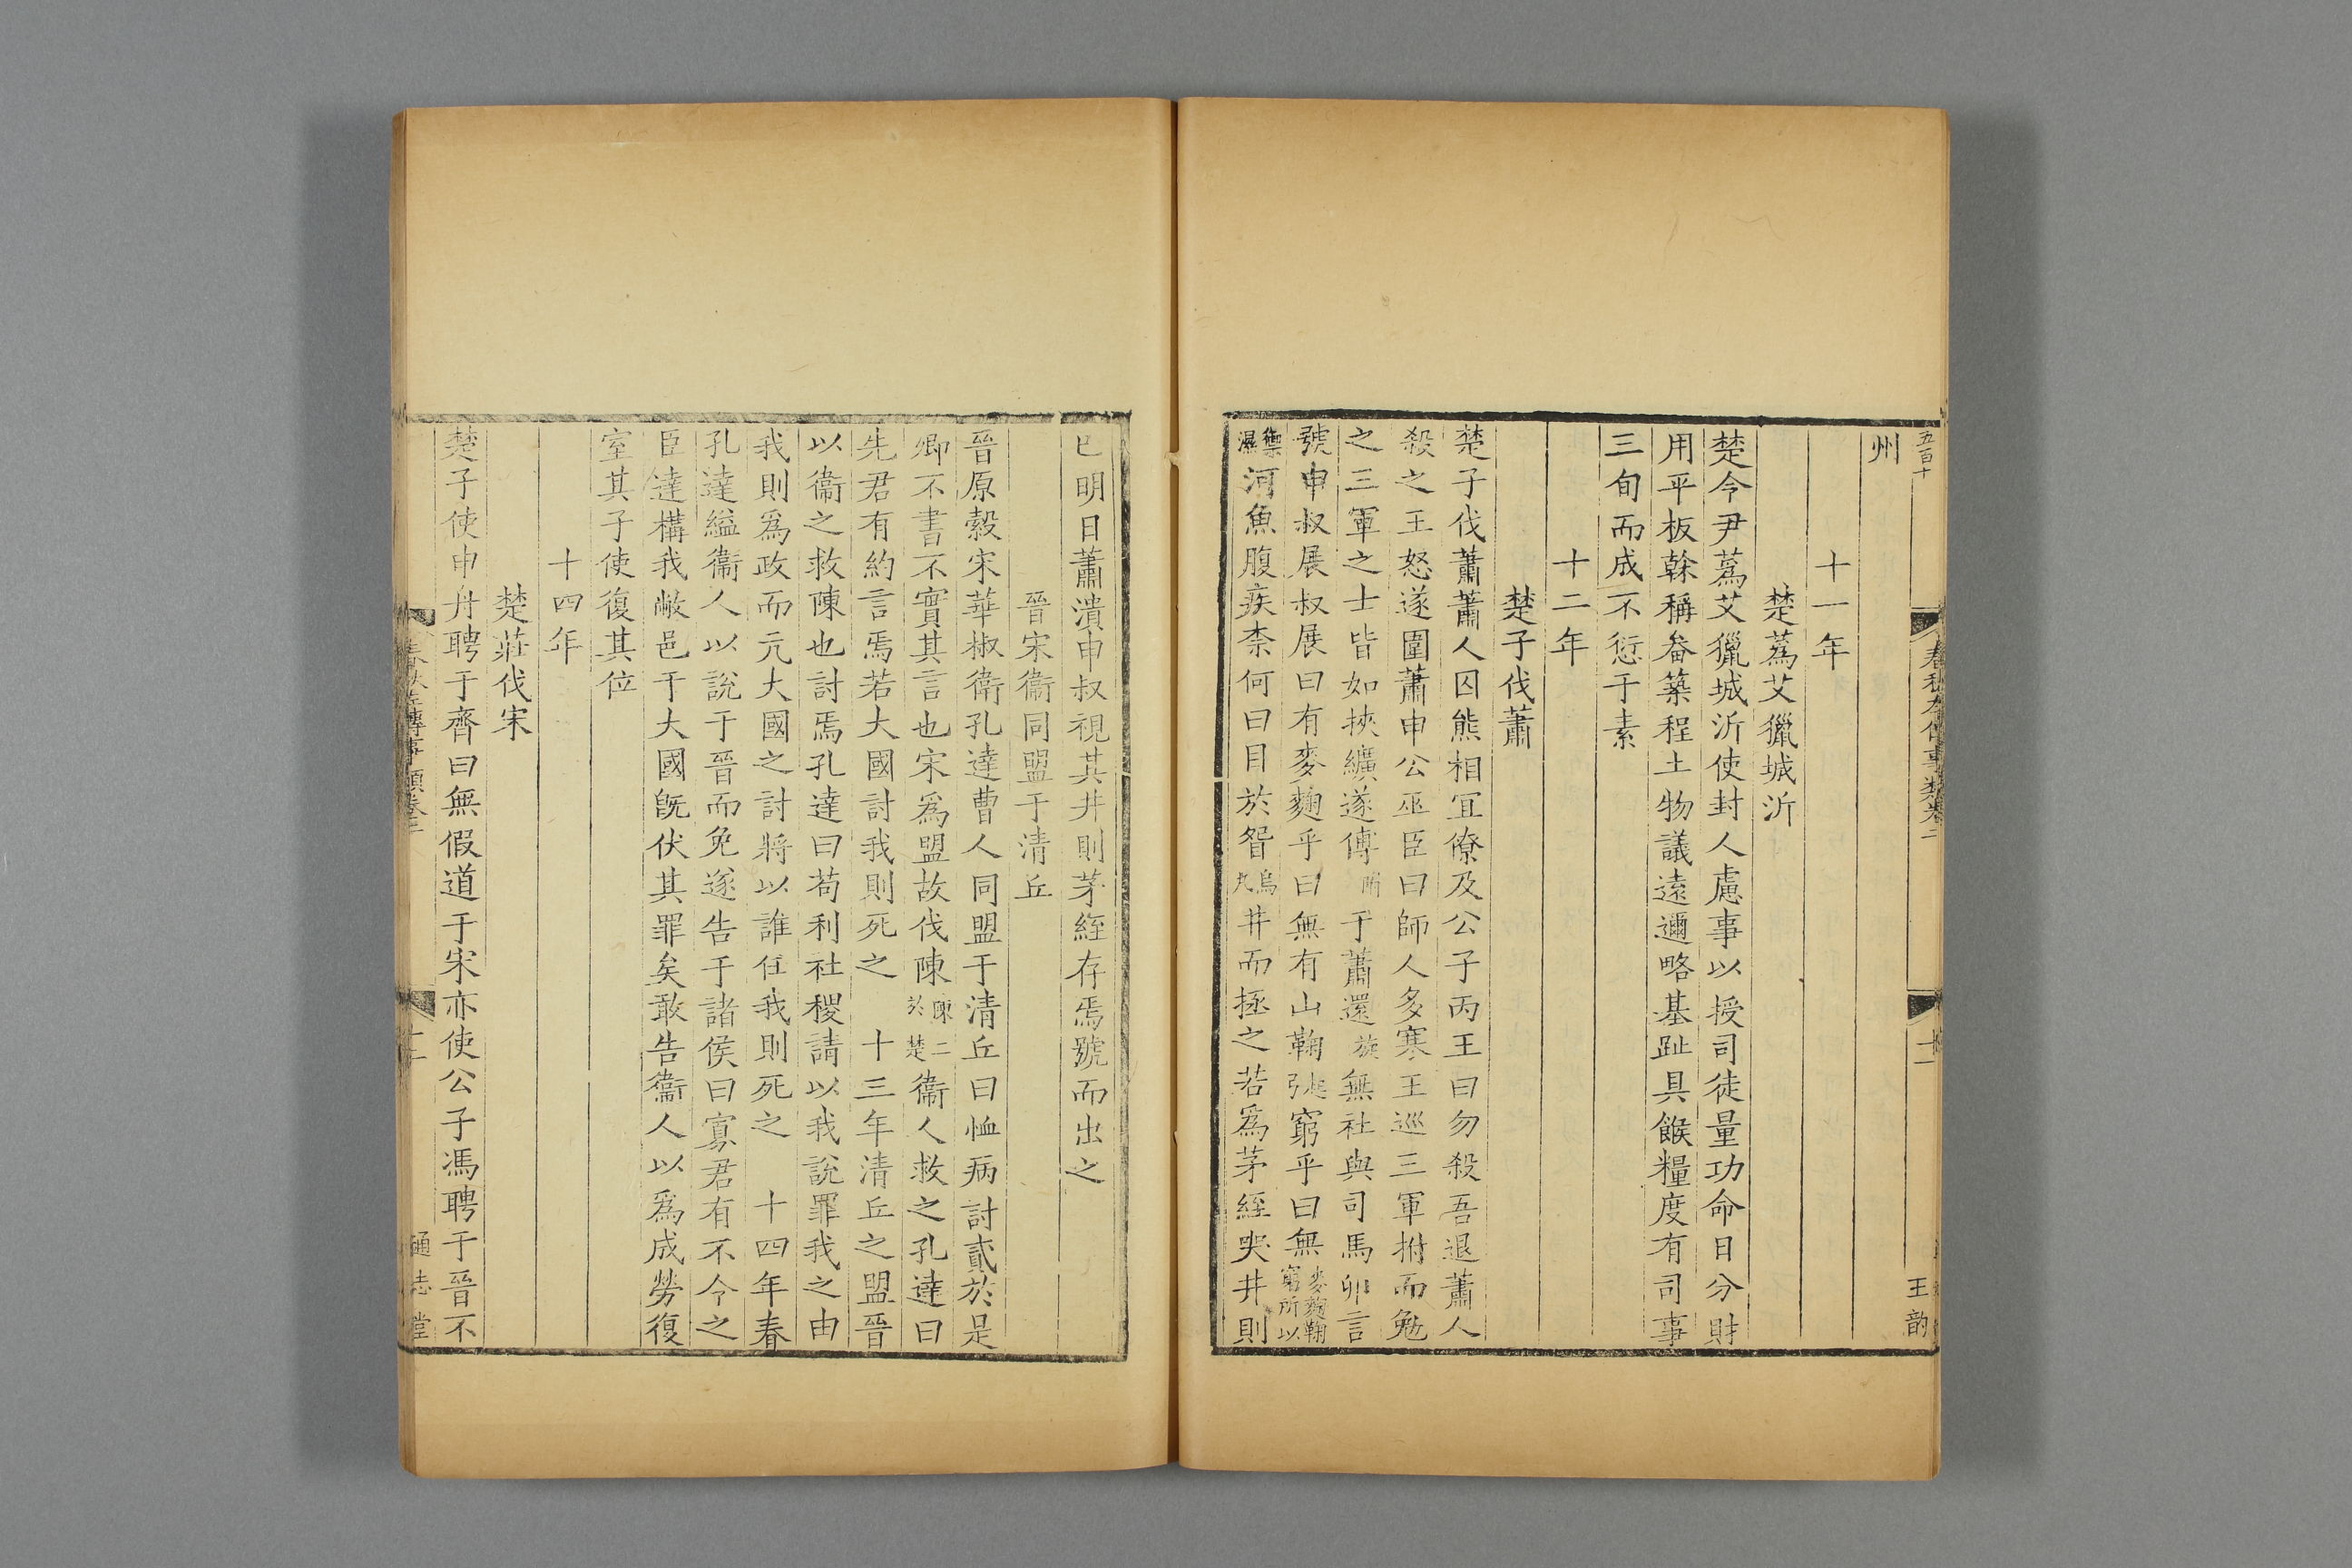 五百十
春秋左傳事類卷二
十一
王韵
州
十一年
楚蒍艾獵城沂
楚令尹蒍艾獵城沂使封人慮事以授司徒量功命日分財
用平板榦稱畚築程土物議遠邇略基趾具餱糧度有司事
三旬而成不愆于素
十二年
楚子伐蕭
楚子伐蕭蕭人囚熊相宜僚及公子丙王曰勿殺吾退蕭人
殺之王怒遂圍蕭申公巫臣曰師人多寒王巡三軍拊而勉
之三軍之士皆如挾纊遂傅于蕭還無社與司馬卯言
號申叔展叔展曰有麥麴乎曰無有山鞠窮乎曰無麥麴鞠窮所以
禦濕河魚腹疾柰何曰目於眢烏丸井而拯之若爲茅絰哭井則
巳明日蕭潰申叔視其井則茅絰存焉號而出之
晉宋衞同盟于清丘
晉原縠宋華椒衛孔達曹人同盟于清丘曰恤病討貳於是
卿不書不實其言也宋爲盟故伐陳陳二於楚衞人救之孔達曰
先君有約言焉若大國討我則死之 十三年清丘之盟晉
以衞之救陳也討焉孔達曰苟利社稷請以我説罪我之由
我則爲政而亢大國之討將以誰任我則死之 十四年春
孔達縊衞人以説于晉而免遂告于諸侯曰寡君有不令之
臣達構我敝邑于大國旣伏其罪矣敢告衞人以爲成勞復
室其子使復其位
十四年
楚莊伐宋
楚子使申舟聘于齊曰無假道于宋亦使公子馮聘于晉不
春秋左傳事類卷二
十二
通志堂